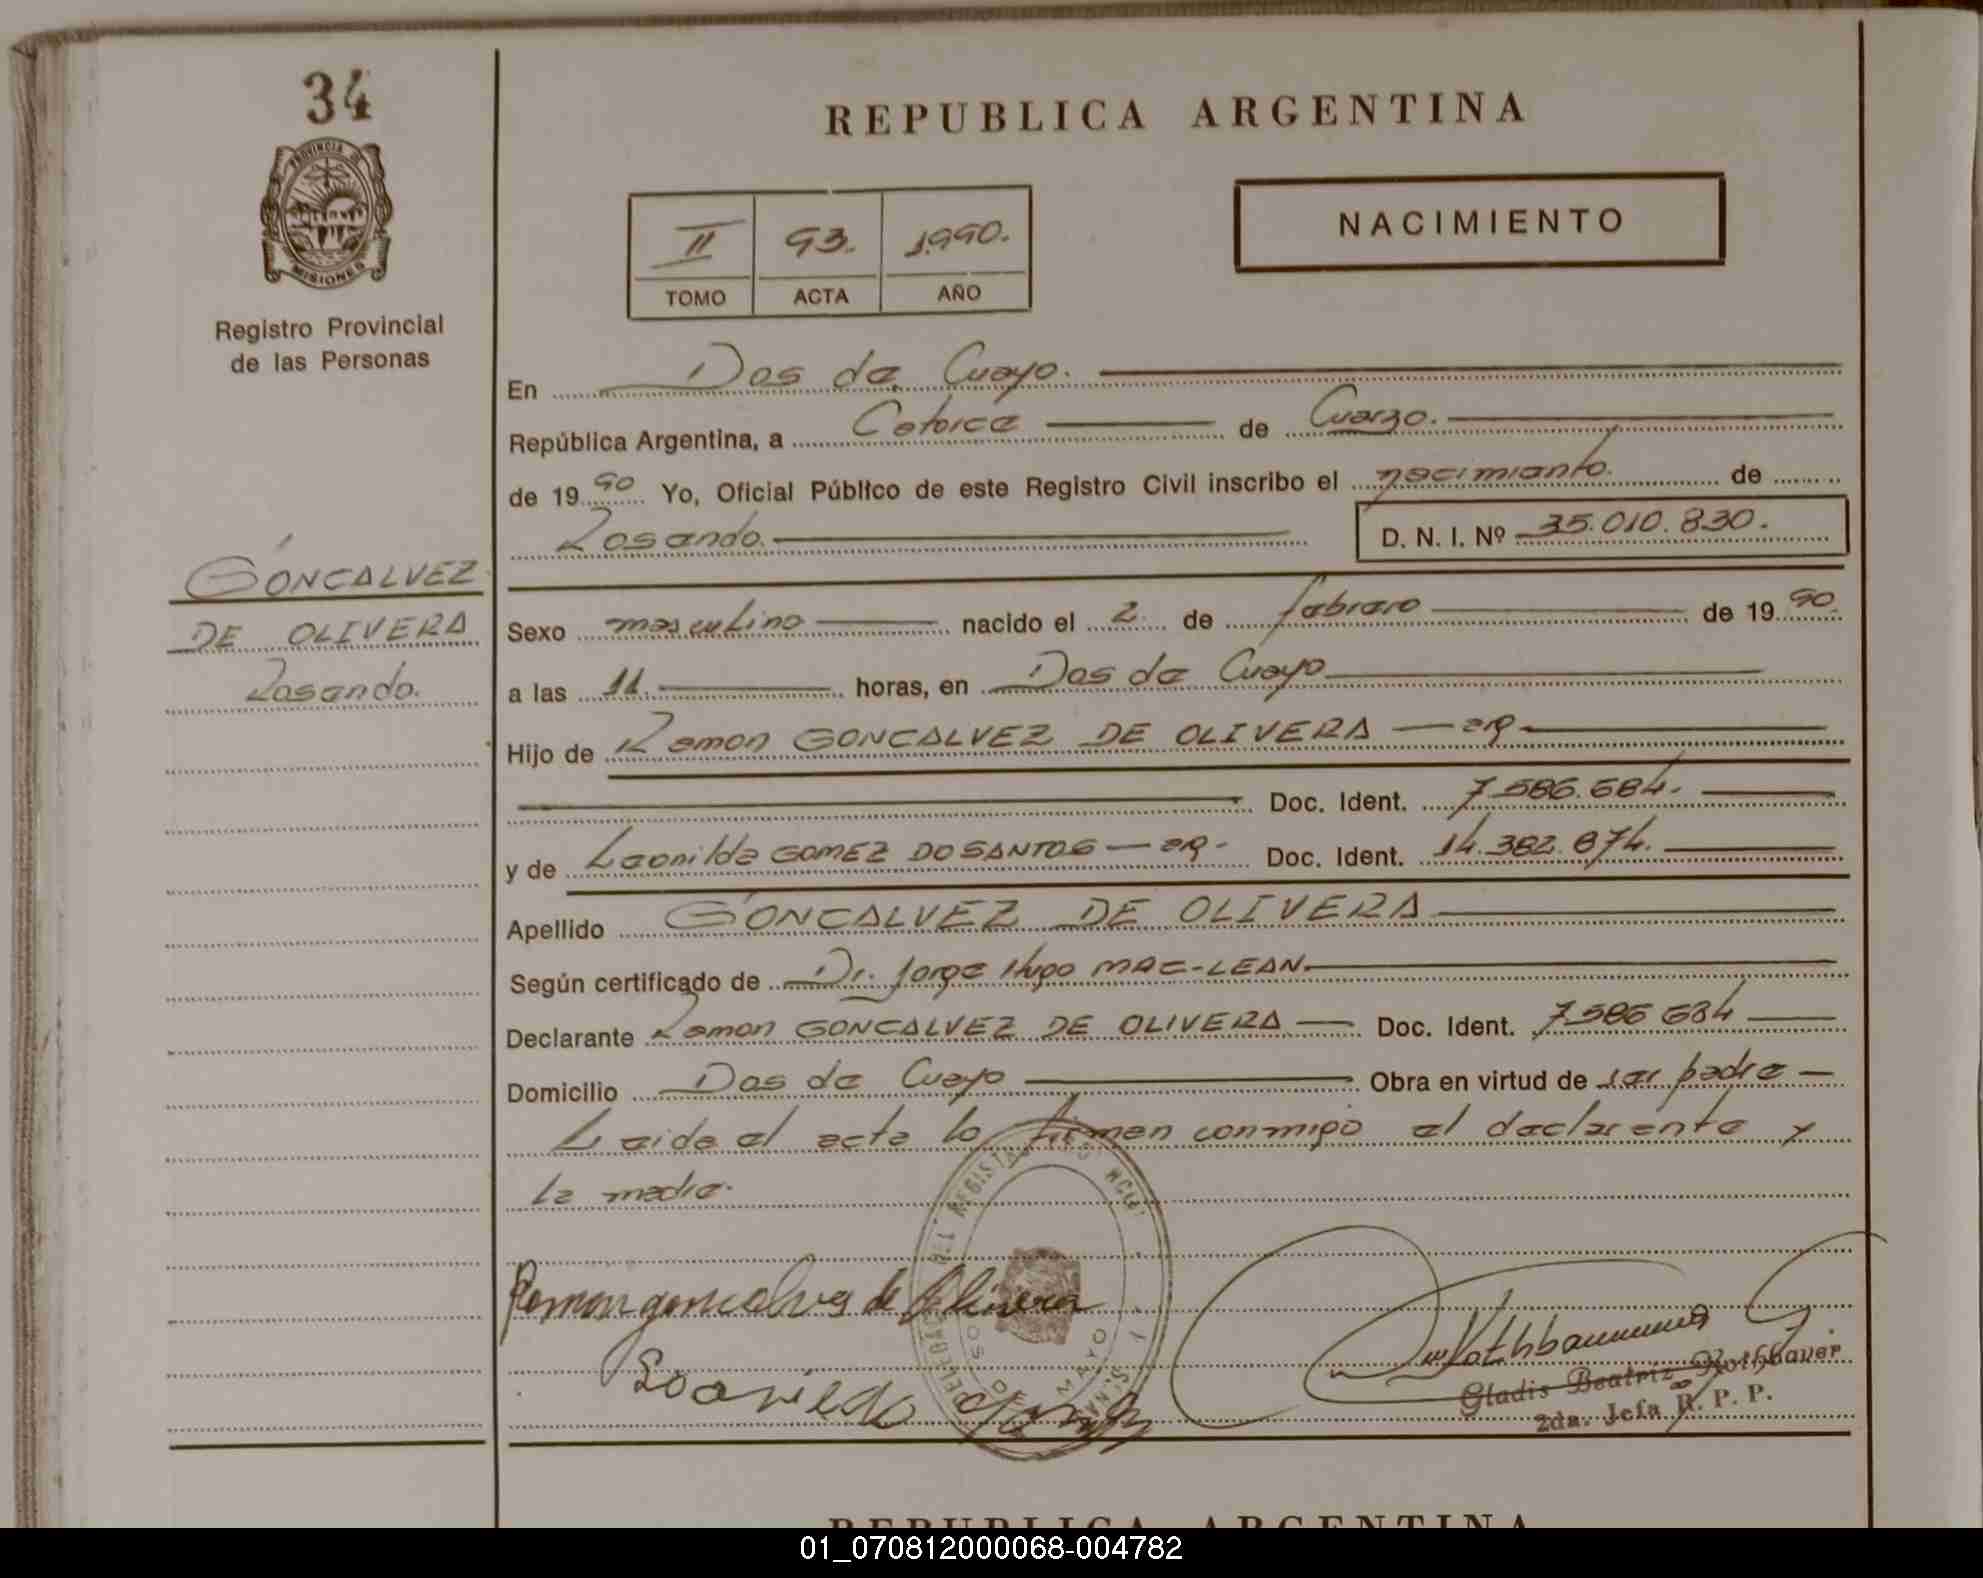 34
PROVINCIA DE
MISIONES
Registro Provincial
de las Personas
REPUBLICA ARGENTINA
NACIMIENTO
II 93. 1.990.
TOMO ACTA AÑO
En Dos de Mayo.
República Argentina, a Catorce de Marzo.
de 19 90 Yo, Oficial Público de este Registro Civil inscribo el nacimiento. de
Rosendo. D. N. I. Nº 35.010.830.
GONCALVEZ
DE OLIVERA
Rosendo.
Sexo masculino nacido el 2 de febrero de 19 90.
a las 11. horas, en Dos de Mayo
Hijo de Ramon GONCALVEZ DE OLIVERA
Doc. Ident. 7.586.684.
y de Leonilda GOMEZ DOSANTOS Doc. Ident. 14.382.874.
Apellido GONCALVEZ DE OLIVERA
Según certificado de Dr. Jorge Hugo MAC-LEAN.
Declarante Ramon GONCALVEZ DE OLIVERA Doc. Ident. 7.586 684
Domicilio Dos de Mayo Obra en virtud de ser padre
Leida el acta la firman conmigo el declarante y
la madre.
Ramon goncalves de Olivera
Gladis Beatriz Rothbauer
2da. Jefa R. P. P.
REPUBLICA ARGENTINA
01_070812000068-004782